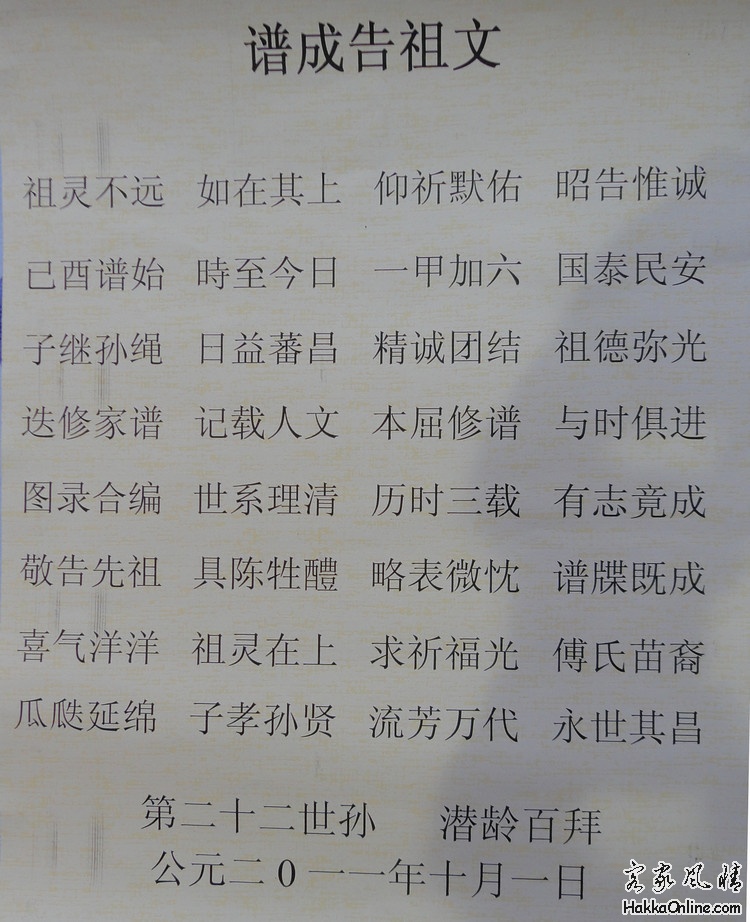 谱成告祖文
祖灵不远 如在其上 仰祈默佑 昭告惟诚
己酉谱始 時至今日 一甲加六 国泰民安
子继孙绳 日益蕃昌 精诚团结 祖德弥光
迭修家谱 记载人文 本屈修谱 与时俱进
图录合编 世系理清 历时三载 有志竟成
敬告先祖 具陈牲醴 略表微忱 谱牒既成
喜气洋洋 祖灵在上 求祈福光 傅氏苗裔
瓜瓞延绵 子孝孙贤 流芳万代 永世其昌
第二十二世孙 潜龄百拜
公元二0一一年十月一日
客家风情
HakkaOnline.com